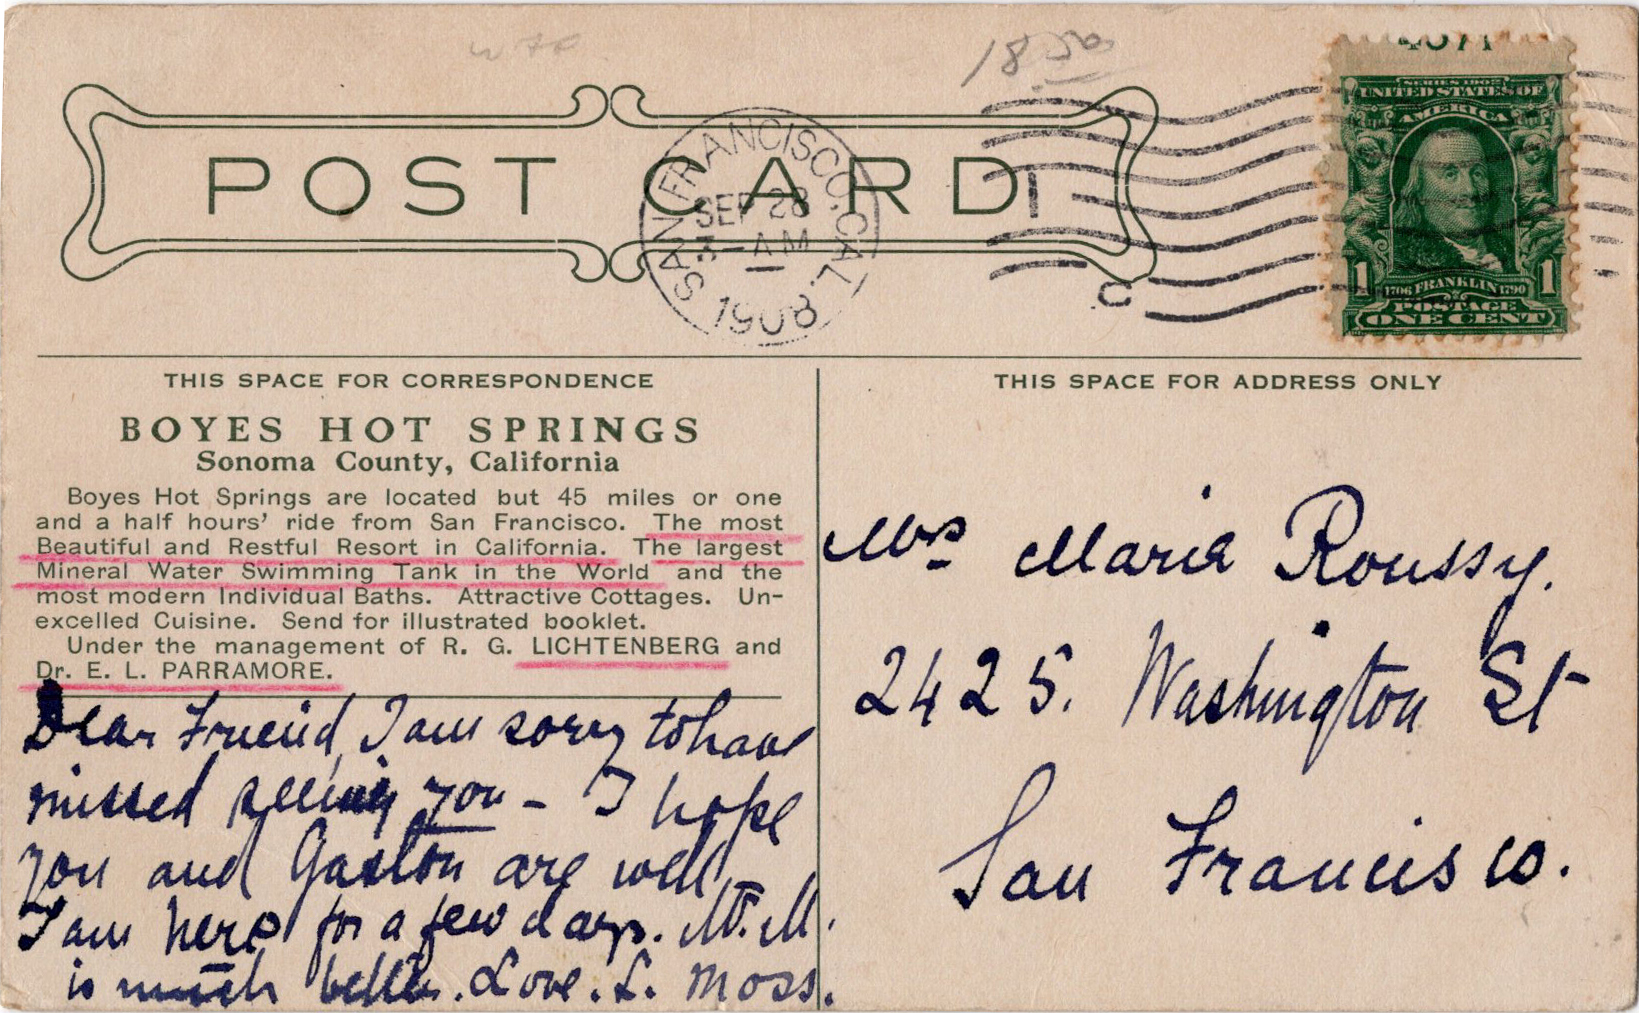 POST CARD
SAN FRANCISCO, CAL.
SEP 28
3-AM
1908
SERIES 1902
UNITED STATES OF
AMERICA
1 1706 FRANKLIN 1790 1
POSTAGE
ONE CENT
THIS SPACE FOR CORRESPONDENCE
BOYES HOT SPRINGS
Sonoma County, California
Boyes Hot Springs are located but 45 miles or one
and a half hours' ride from San Francisco. The most
Beautiful and Restful Resort in California. The largest
Mineral Water Swimming Tank in the World and the
most modern Individual Baths. Attractive Cottages. Un-
excelled Cuisine. Send for illustrated booklet.
Under the management of R. G. LICHTENBERG and
Dr. E. L. PARRAMORE.
Dear Frueind, I am sorry to have
missed seeing you - I hope
you and Gaston are well,
I am here for a few days. M. M.
is much better. Love. L. Moss.
THIS SPACE FOR ADDRESS ONLY
Mrs Maria Roussy.
2425. Washington St
San Francisco.